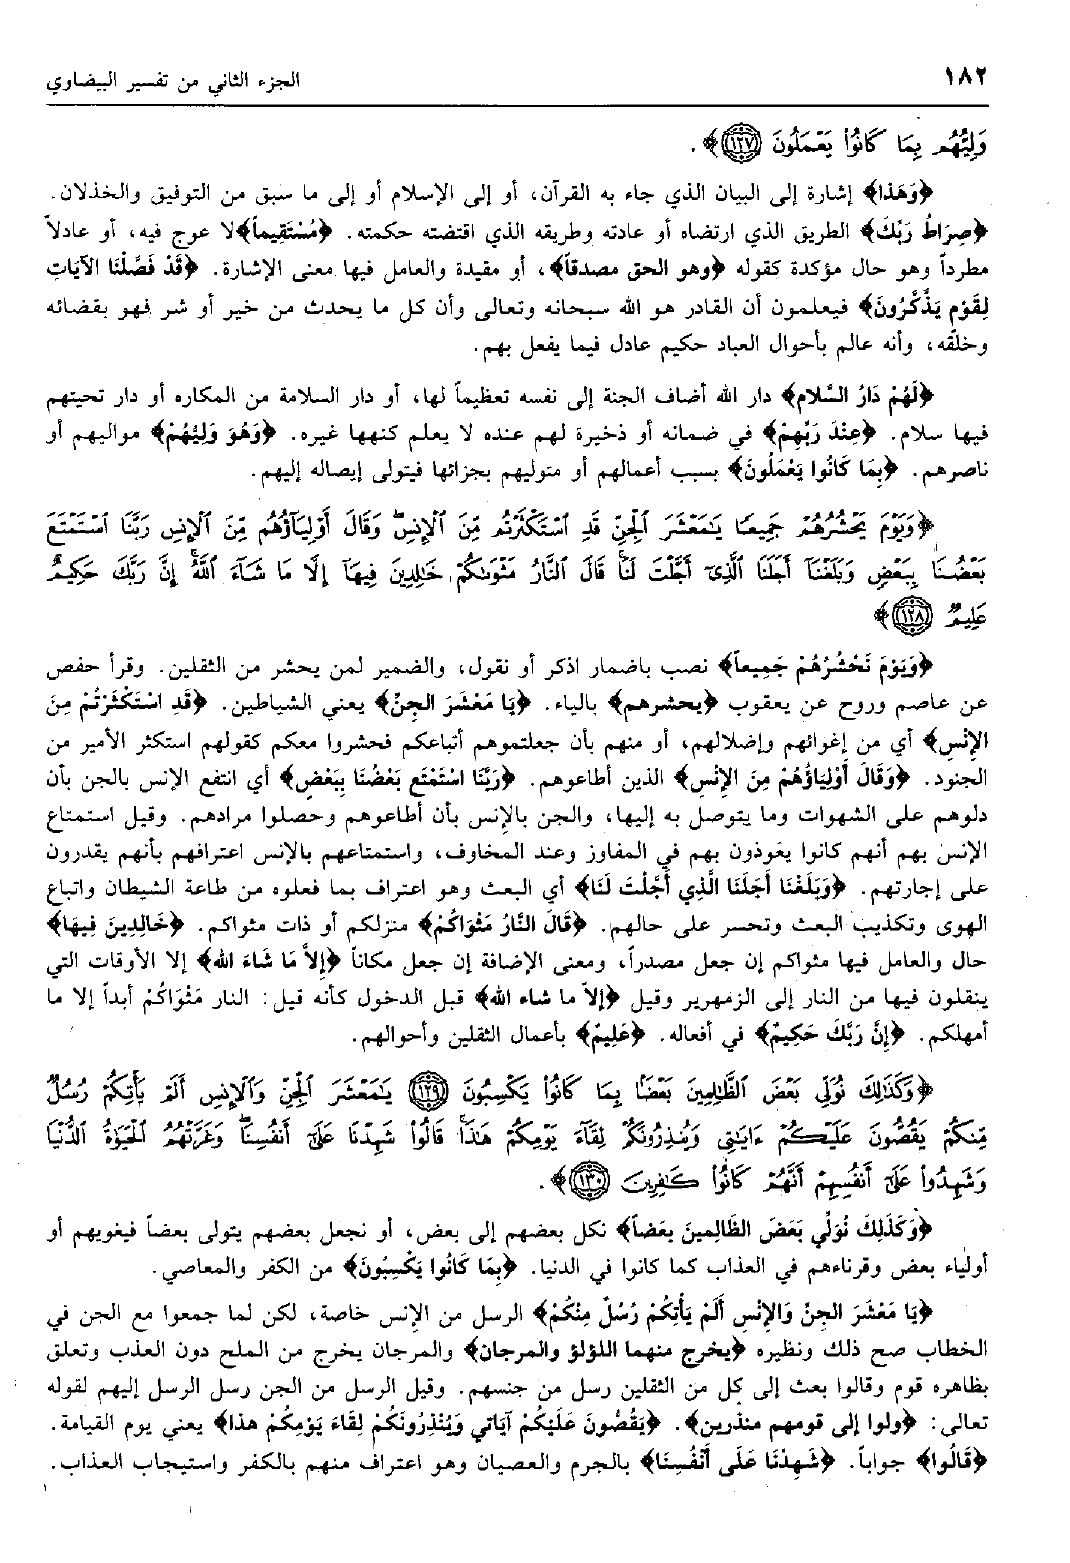 ١٨٢
الجزء الثاني من تفسير البيضاوي
وَلِيُّهُم بِمَا كَانُوا۟ يَعْمَلُونَ ﴿١٢٧﴾﴾ .
﴿وَهَذَا﴾ إشارة إلى البيان الذي جاء به القرآن، أو إلى الإسلام أو إلى ما سبق من التوفيق والخذلان.
﴿صِرَاطُ رَبِّكَ﴾ الطريق الذي ارتضاه أو عادته وطريقه الذي اقتضته حكمته. ﴿مُسْتَقِيماً﴾لا عوج فيه، أو عادلاً
مطرداً وهو حال مؤكدة كقوله ﴿وهو الحق مصدقاً﴾، أو مقيدة والعامل فيها معنى الإشارة. ﴿قَدْ فَصَّلْنَا الآيَاتِ
لِقَوْمٍ يَذَّكَّرُونَ﴾ فيعلمون أن القادر هو الله سبحانه وتعالى وأن كل ما يحدث من خير أو شر فهو بقضائه
وخلقه، وأنه عالم بأحوال العباد حكيم عادل فيما يفعل بهم.
﴿لَهُمْ دَارُ السَّلَام﴾ دار الله أضاف الجنة إلى نفسه تعظيماً لها، أو دار السلامة من المكاره أو دار تحيتهم
فيها سلام. ﴿عِنْدَ رَبِّهِمْ﴾ في ضمانه أو ذخيرة لهم عنده لا يعلم كنهها غيره. ﴿وَهُوَ وَلِيُّهُمْ﴾ مواليهم أو
ناصرهم. ﴿بِمَا كَانُوا يَعْمَلُونَ﴾ بسبب أعمالهم أو متوليهم بجزائها فيتولى إيصاله إليهم.
﴿وَيَوْمَ يَحْشُرُهُمْ جَمِيعًا يَٰمَعْشَرَ ٱلْجِنِّ قَدِ ٱسْتَكْثَرْتُم مِّنَ ٱلْإِنسِ ۖ وَقَالَ أَوْلِيَآؤُهُم مِّنَ ٱلْإِنسِ رَبَّنَا ٱسْتَمْتَعَ
بَعْضُنَا بِبَعْضٍ وَبَلَغْنَآ أَجَلَنَا ٱلَّذِىٓ أَجَّلْتَ لَنَا ۚ قَالَ ٱلنَّارُ مَثْوَىٰكُمْ خَٰلِدِينَ فِيهَآ إِلَّا مَا شَآءَ ٱللَّهُ ۗ إِنَّ رَبَّكَ حَكِيمٌ
عَلِيمٌ ﴿١٢٨﴾﴾
﴿وَيَوْمَ نَحْشُرُهُمْ جَمِيعاً﴾ نصب باضمار اذكر أو نقول، والضمير لمن يحشر من الثقلين. وقرأ حفص
عن عاصم وروح عن يعقوب ﴿يحشرهم﴾ بالياء. ﴿يَا مَعْشَرَ الجِنِّ﴾ يعني الشياطين. ﴿قَدِ اسْتَكْثَرْتُمْ مِنَ
الإِنْسِ﴾ أي من إغوائهم وإضلالهم، أو منهم بأن جعلتموهم أتباعكم فحشروا معكم كقولهم استكثر الأمير من
الجنود. ﴿وَقَالَ أَوْلِيَاؤُهُمْ مِنَ الإِنْسِ﴾ الذين أطاعوهم. ﴿رَبَّنَا اسْتَمْتَعَ بَعْضُنَا بِبَعْضٍ﴾ أي انتفع الإنس بالجن بأن
دلوهم على الشهوات وما يتوصل به إليها، والجن بالإنس بأن أطاعوهم وحصلوا مرادهم. وقيل استمتاع
الإنس بهم أنهم كانوا يعوذون بهم في المفاوز وعند المخاوف، واستمتاعهم بالإنس اعترافهم بأنهم يقدرون
على إجارتهم. ﴿وَبَلَغْنَا أَجَلَنَا الَّذِي أَجَّلْتَ لَنَا﴾ أي البعث وهو اعتراف بما فعلوه من طاعة الشيطان واتباع
الهوى وتكذيب البعث وتحسر على حالهم. ﴿قَالَ النَّارُ مَثْوَاكُمْ﴾ منزلكم أو ذات مثواكم. ﴿خَالِدِينَ فِيهَا﴾
حال والعامل فيها مثواكم إن جعل مصدراً، ومعنى الإضافة إن جعل مكاناً ﴿إِلاَّ مَا شَاءَ الله﴾ إلا الأوقات التي
ينقلون فيها من النار إلى الزمهرير وقيل ﴿إلاَّ ما شاء الله﴾ قبل الدخول كأنه قيل: النار مَثْوَاكُمْ أبداً إلا ما
أمهلكم. ﴿إِنَّ رَبَّكَ حَكِيمٌ﴾ في أفعاله. ﴿عَلِيمٌ﴾ بأعمال الثقلين وأحوالهم.
﴿وَكَذَٰلِكَ نُوَلِّى بَعْضَ ٱلظَّٰلِمِينَ بَعْضًۢا بِمَا كَانُوا۟ يَكْسِبُونَ ﴿١٢٩﴾ يَٰمَعْشَرَ ٱلْجِنِّ وَٱلْإِنسِ أَلَمْ يَأْتِكُمْ رُسُلٌ
مِّنكُمْ يَقُصُّونَ عَلَيْكُمْ ءَايَٰتِى وَيُنذِرُونَكُمْ لِقَآءَ يَوْمِكُمْ هَٰذَا ۚ قَالُوا۟ شَهِدْنَا عَلَىٰٓ أَنفُسِنَا ۖ وَغَرَّتْهُمُ ٱلْحَيَوٰةُ ٱلدُّنْيَا
وَشَهِدُوا۟ عَلَىٰٓ أَنفُسِهِمْ أَنَّهُمْ كَانُوا۟ كَٰفِرِينَ ﴿١٣٠﴾﴾ .
﴿وَكَذَلِكَ نُوَلِّي بَعْضَ الظَّالِمِينَ بَعْضاً﴾ نكل بعضهم إلى بعض، أو نجعل بعضهم يتولى بعضاً فيغويهم أو
أولياء بعض وقرناءهم في العذاب كما كانوا في الدنيا. ﴿بِمَا كَانُوا يَكْسِبُونَ﴾ من الكفر والمعاصي.
﴿يَا مَعْشَرَ الجِنِّ وَالإِنْسِ أَلَمْ يَأْتِكُمْ رُسُلٌ مِنْكُمْ﴾ الرسل من الإنس خاصة، لكن لما جمعوا مع الجن في
الخطاب صح ذلك ونظيره ﴿يخرج منهما اللؤلؤ والمرجان﴾ والمرجان يخرج من الملح دون العذب وتعلق
بظاهره قوم وقالوا بعث إلى كل من الثقلين رسل من جنسهم. وقيل الرسل من الجن رسل الرسل إليهم لقوله
تعالى: ﴿ولوا إلى قومهم منذرين﴾. ﴿يَقُصُّونَ عَلَيْكُمْ آيَاتي وَيُنْذِرُونَكُمْ لِقَاءَ يَوْمِكُمْ هذا﴾ يعني يوم القيامة.
﴿قَالُوا﴾ جواباً. ﴿شَهِدْنَا عَلَى أَنْفُسِنَا﴾ بالجرم والعصيان وهو اعتراف منهم بالكفر واستيجاب العذاب.